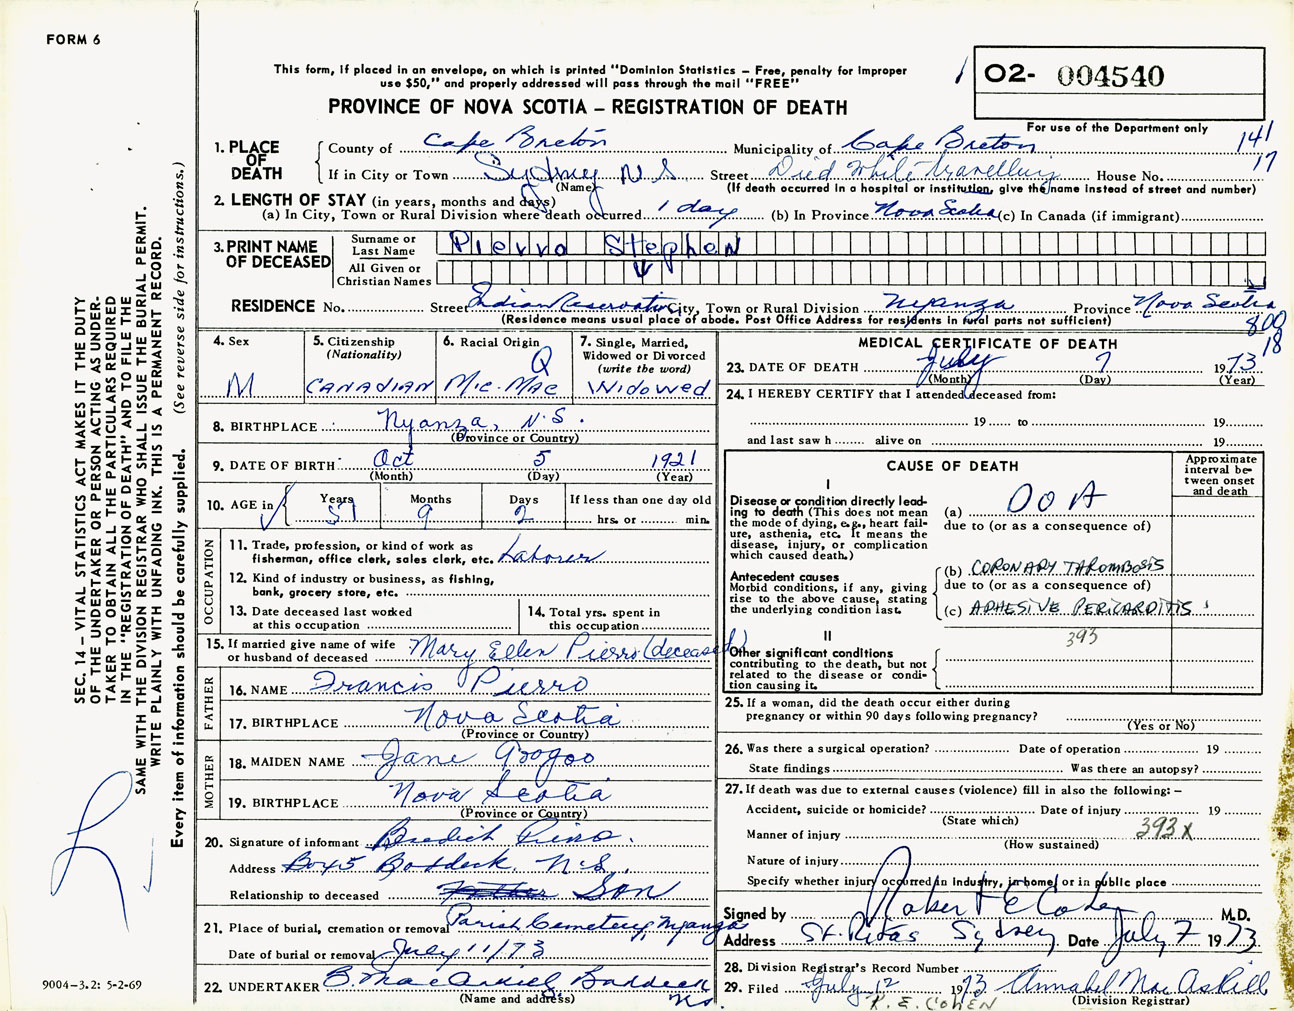 FORM 6
This form, if placed in an envelope, on which is printed "Dominion Statistics – Free, penalty for improper
use $50," and properly addressed will pass through the mail "FREE"
PROVINCE OF NOVA SCOTIA – REGISTRATION OF DEATH
02- 004540
For use of the Department only
141
17
1. PLACE OF DEATH
County of Cape Breton Municipality of Cape Breton
If in City or Town Sydney N S Street Died While travelling House No.
(Name) (If death occurred in a hospital or institution, give the name instead of street and number)
2. LENGTH OF STAY (in years, months and days)
(a) In City, Town or Rural Division where death occurred 1 day (b) In Province Nova Scotia (c) In Canada (if immigrant)
3. PRINT NAME OF DECEASED
Surname or Last Name Pierro Stephen
All Given or Christian Names
RESIDENCE No. Street Indian Reservation City, Town or Rural Division Nyanza Province Nova Scotia
(Residence means usual place of abode. Post Office Address for residents in rural parts not sufficient)
800
18
4. Sex
M
5. Citizenship
(Nationality)
CANADIAN
6. Racial Origin
Q
Mic-Mac
7. Single, Married,
Widowed or Divorced
(write the word)
Widowed
8. BIRTHPLACE Nyanza, N.S.
(Province or Country)
9. DATE OF BIRTH Oct 5 1921
(Month) (Day) (Year)
10. AGE in
Years Months Days If less than one day old
51 9 2 hrs. or min.
OCCUPATION
11. Trade, profession, or kind of work as
fisherman, office clerk, sales clerk, etc. Laborer
12. Kind of industry or business, as fishing,
bank, grocery store, etc.
13. Date deceased last worked
at this occupation
14. Total yrs. spent in
this occupation
15. If married give name of wife
or husband of deceased Mary Ellen Pierro (deceased)
FATHER
16. NAME Francis Pierro
17. BIRTHPLACE Nova Scotia
(Province or Country)
MOTHER
18. MAIDEN NAME Jane Googoo
19. BIRTHPLACE Nova Scotia
(Province or Country)
20. Signature of informant
Address Box 5 Baddeck. N.S.
Relationship to deceased Son
21. Place of burial, cremation or removal Parish Cemetery, Nyanza
Date of burial or removal July 11/73
22. UNDERTAKER Baddeck
(Name and address) NS.
MEDICAL CERTIFICATE OF DEATH
23. DATE OF DEATH July 7 1973
(Month) (Day) (Year)
24. I HEREBY CERTIFY that I attended deceased from:
19 to 19
and last saw h alive on 19
CAUSE OF DEATH
Approximate
interval be-
tween onset
and death
I
Disease or condition directly lead-
ing to death (This does not mean
the mode of dying, e.g., heart fail-
ure, asthenia, etc. It means the
disease, injury, or complication
which caused death.)
(a) DOA
due to (or as a consequence of)
Antecedent causes
Morbid conditions, if any, giving
rise to the above cause, stating
the underlying condition last.
(b) CORONARY THROMBOSIS
due to (or as a consequence of)
(c) ADHESIVE PERICARDITIS
393
II
Other significant conditions
contributing to the death, but not
related to the disease or condi-
tion causing it.
25. If a woman, did the death occur either during
pregnancy or within 90 days following pregnancy?
(Yes or No)
26. Was there a surgical operation? Date of operation 19
State findings Was there an autopsy?
27. If death was due to external causes (violence) fill in also the following: –
Accident, suicide or homicide? Date of injury 19
(State which)
Manner of injury 393x
(How sustained)
Nature of injury
Specify whether injury occurred in industry, in home, or in public place
Signed by Robert E Cohen M.D.
Address St. Ritas Sydney Date July 7 1973
28. Division Registrar's Record Number
29. Filed July 12 1973 Annabel MacAskill
R. E. COHEN (Division Registrar)
SEC. 14 – VITAL STATISTICS ACT MAKES IT THE DUTY
OF THE UNDERTAKER OR PERSON ACTING AS UNDER-
TAKER TO OBTAIN ALL THE PARTICULARS REQUIRED
IN THE "REGISTRATION OF DEATH" AND TO FILE THE
SAME WITH THE DIVISION REGISTRAR WHO SHALL ISSUE THE BURIAL PERMIT.
WRITE PLAINLY WITH UNFADING INK. THIS IS A PERMANENT RECORD.
Every item of information should be carefully supplied. (See reverse side for instructions.)
9004-3.2: 5-2-69